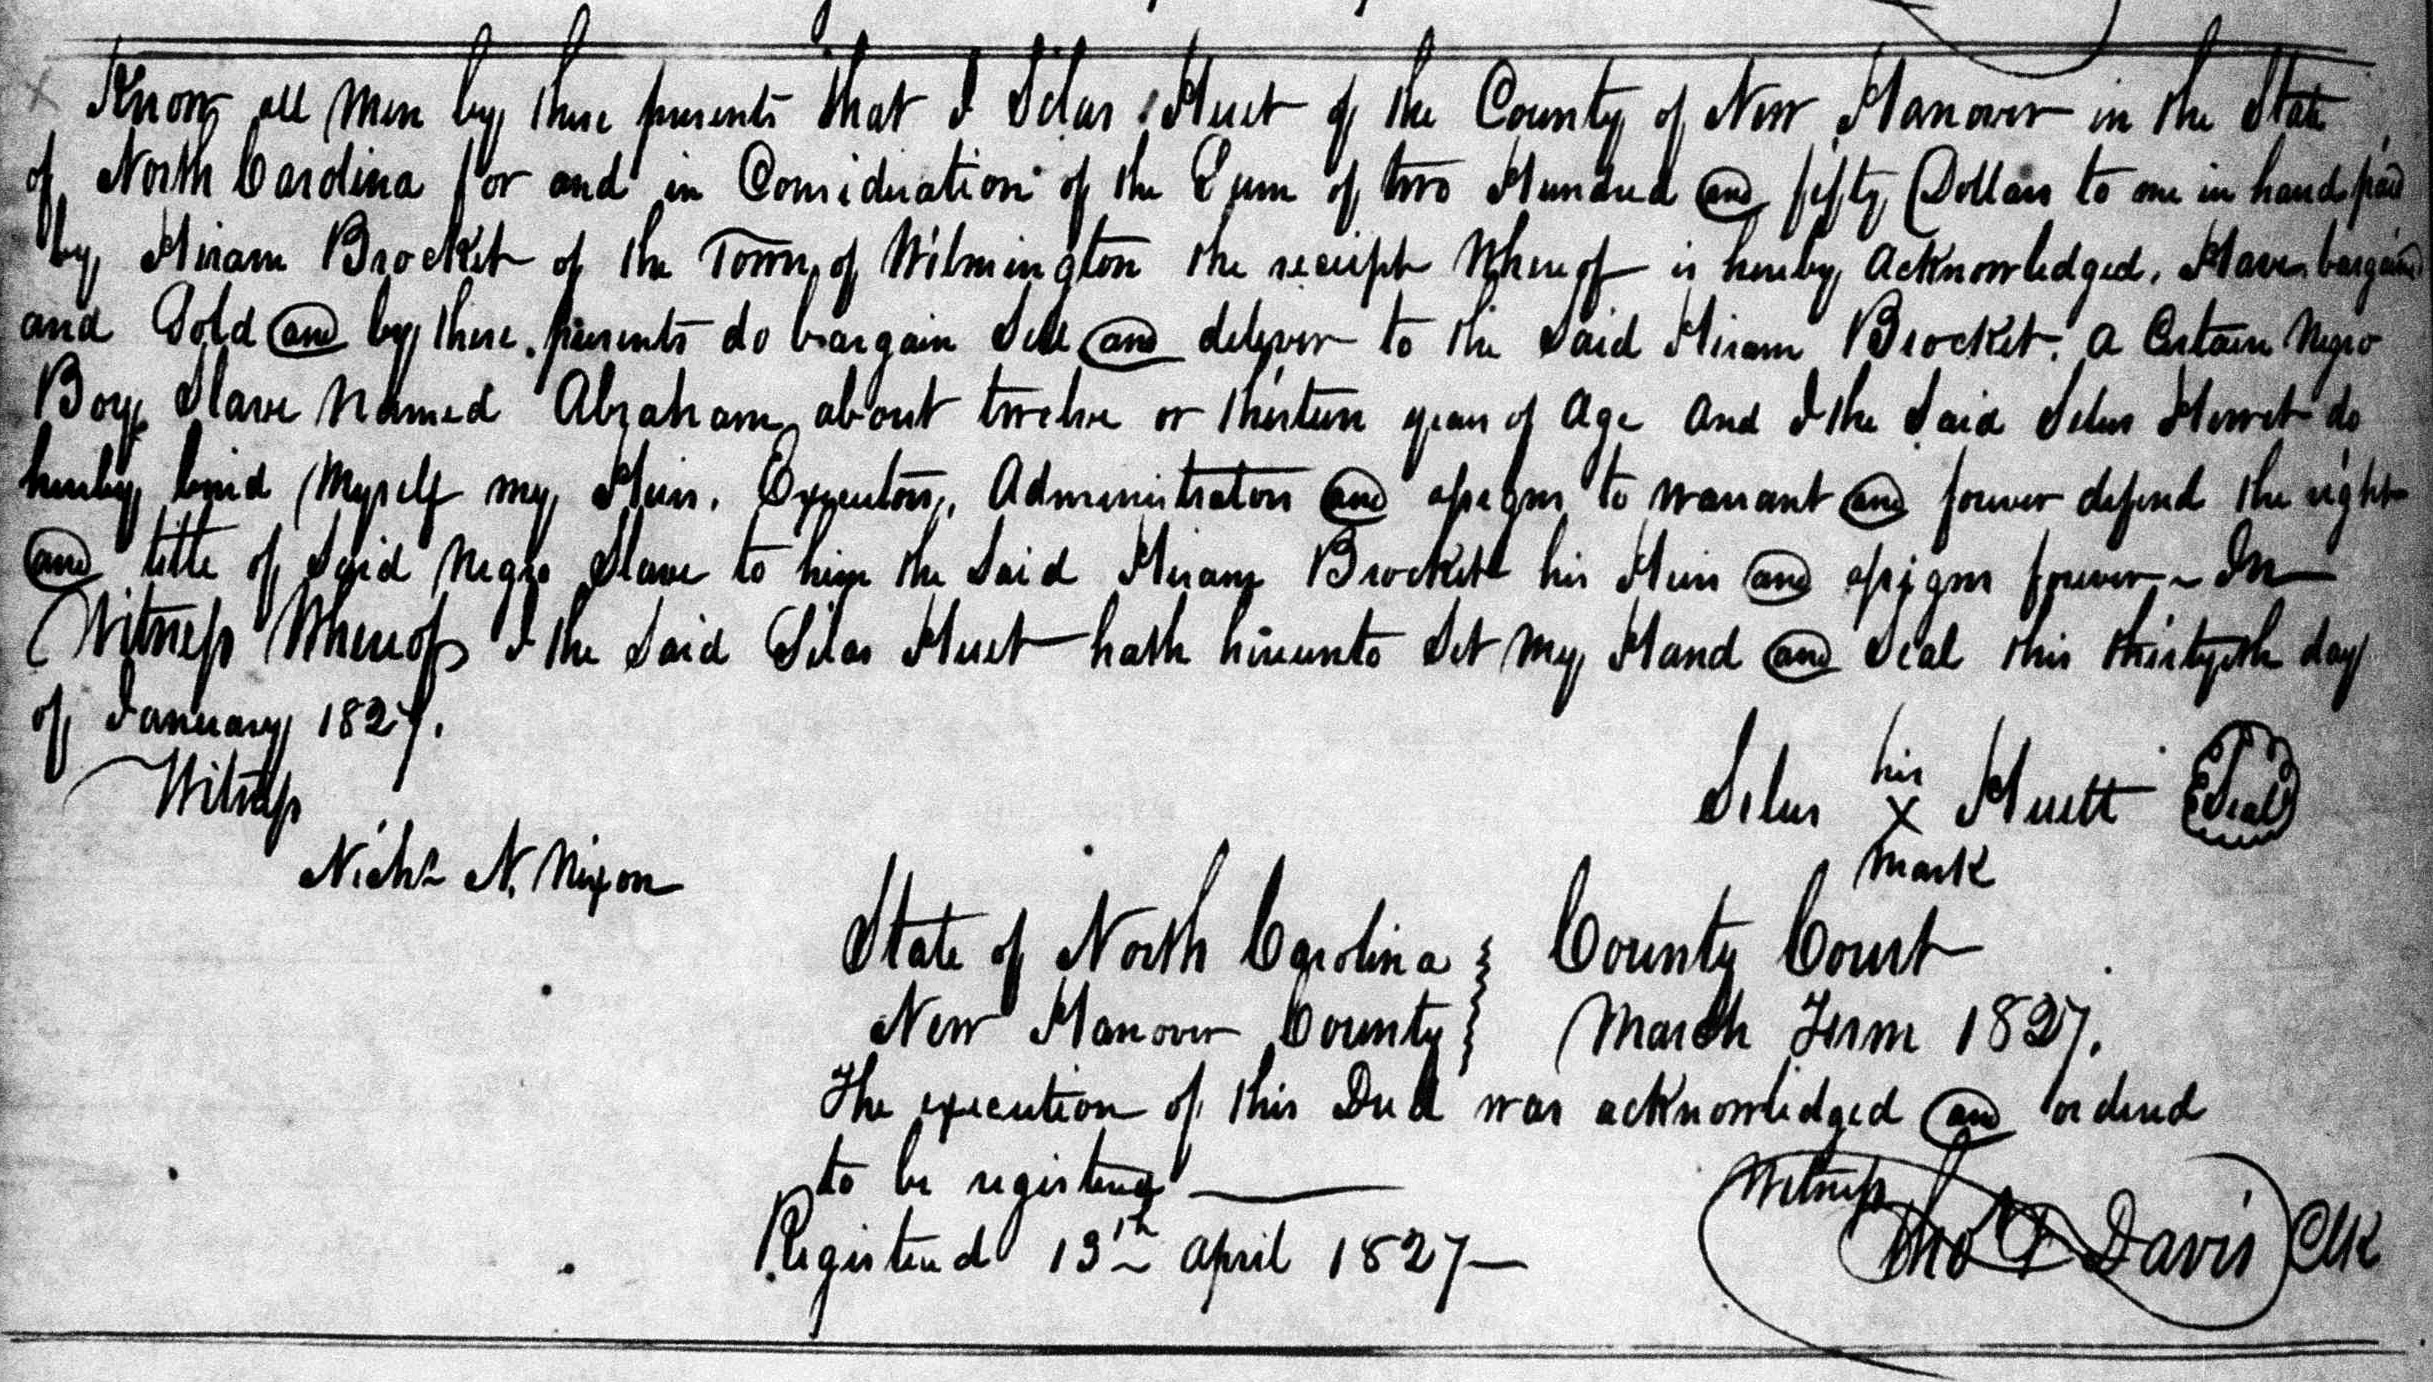 Know all Men by these presents that I Silas Huet of the County of New Hanover in the State
of North Carolina for and in Consideration of the Sum of two Hundred and fifty Dollars to me in hand paid
by Hiram Brocket of the Town of Wilmington the receipt Whereof is hereby Acknowledged, Have bargained
and Sold and by these presents do bargain Sell and deliver to the said Hiram Brocket. a Certain Negro
Boy Slave Named Abraham about twelve or thirteen years of Age And I the Said Silus Hewet do
hereby bind Myself my Heirs, Executors, Administrators and assigns to warrant and forever defend the right
and title of Said Negro Slave to him the Said Hiram Brockett his Heirs and assigns forever ~ In
Witness Whereof I the Said Silas Huet hath hereunto Set My Hand and Seal this thirtyeth day
of January 1827.
Witness
Silus his X mark Huett Seal
Nichs N. Nixon
State of North Carolina } County Court
New Hanover County } March Term 1827.
The execution of this Deed was acknowledged and ordered
to be registered
Witness
Registered 13th April 1827 —
Tho F Davis Clk